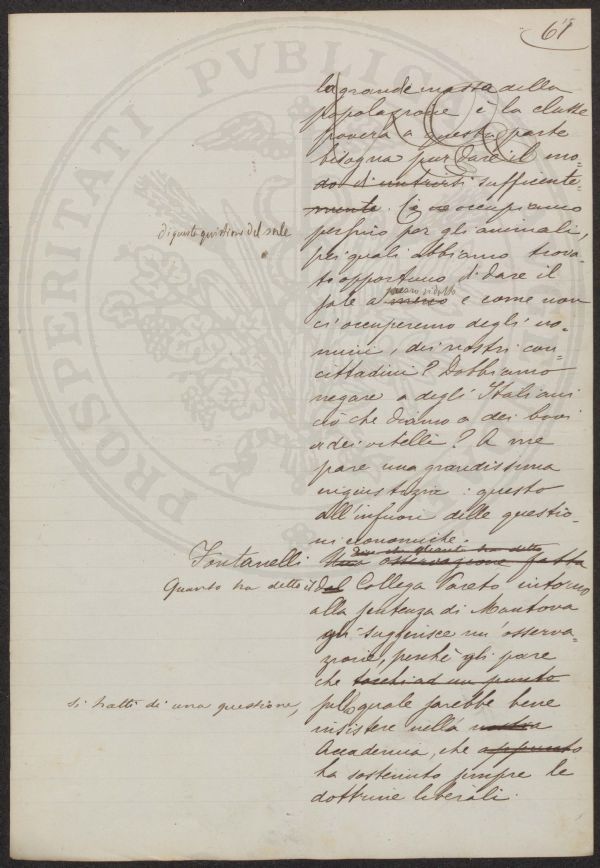 61
PROSPERITATI PVBLICAE
la grande massa della
popolazione è la classe
povera a questa parte
bisogna pur dare il mo-
do di nutrirsi sufficente-
mente. Ci occupiamo
di questi quistioni del sale
perfino per gli animali,
pei quali abbiamo trova-
to opportuno di dare il
prezzo ridotto
sale a merco e come non
ci occuperemo degli uo-
mini, dei nostri con-
cittadini? Dobbiamo
negare a degli Italiani
ciò che diamo a dei buoi
a dei vitelli? A me
pare una grandissima
ingiustizia: questo
all'infuori delle questio-
ni economiche.
Dice che quanto ha detto
Fontanelli Una osservazione fatta
Quanto ha detto il dal Collega Pareto intorno
alla sentenza di Mantova
gli suggerisce un'osserva-
zione, perchè gli pare
che tocchi ad un punto
si tratti di una questione, sul quale sarebbe bene
insistere nella nostra
Accademia, che appunto
ha sostenuto sempre le
dottrine liberali.